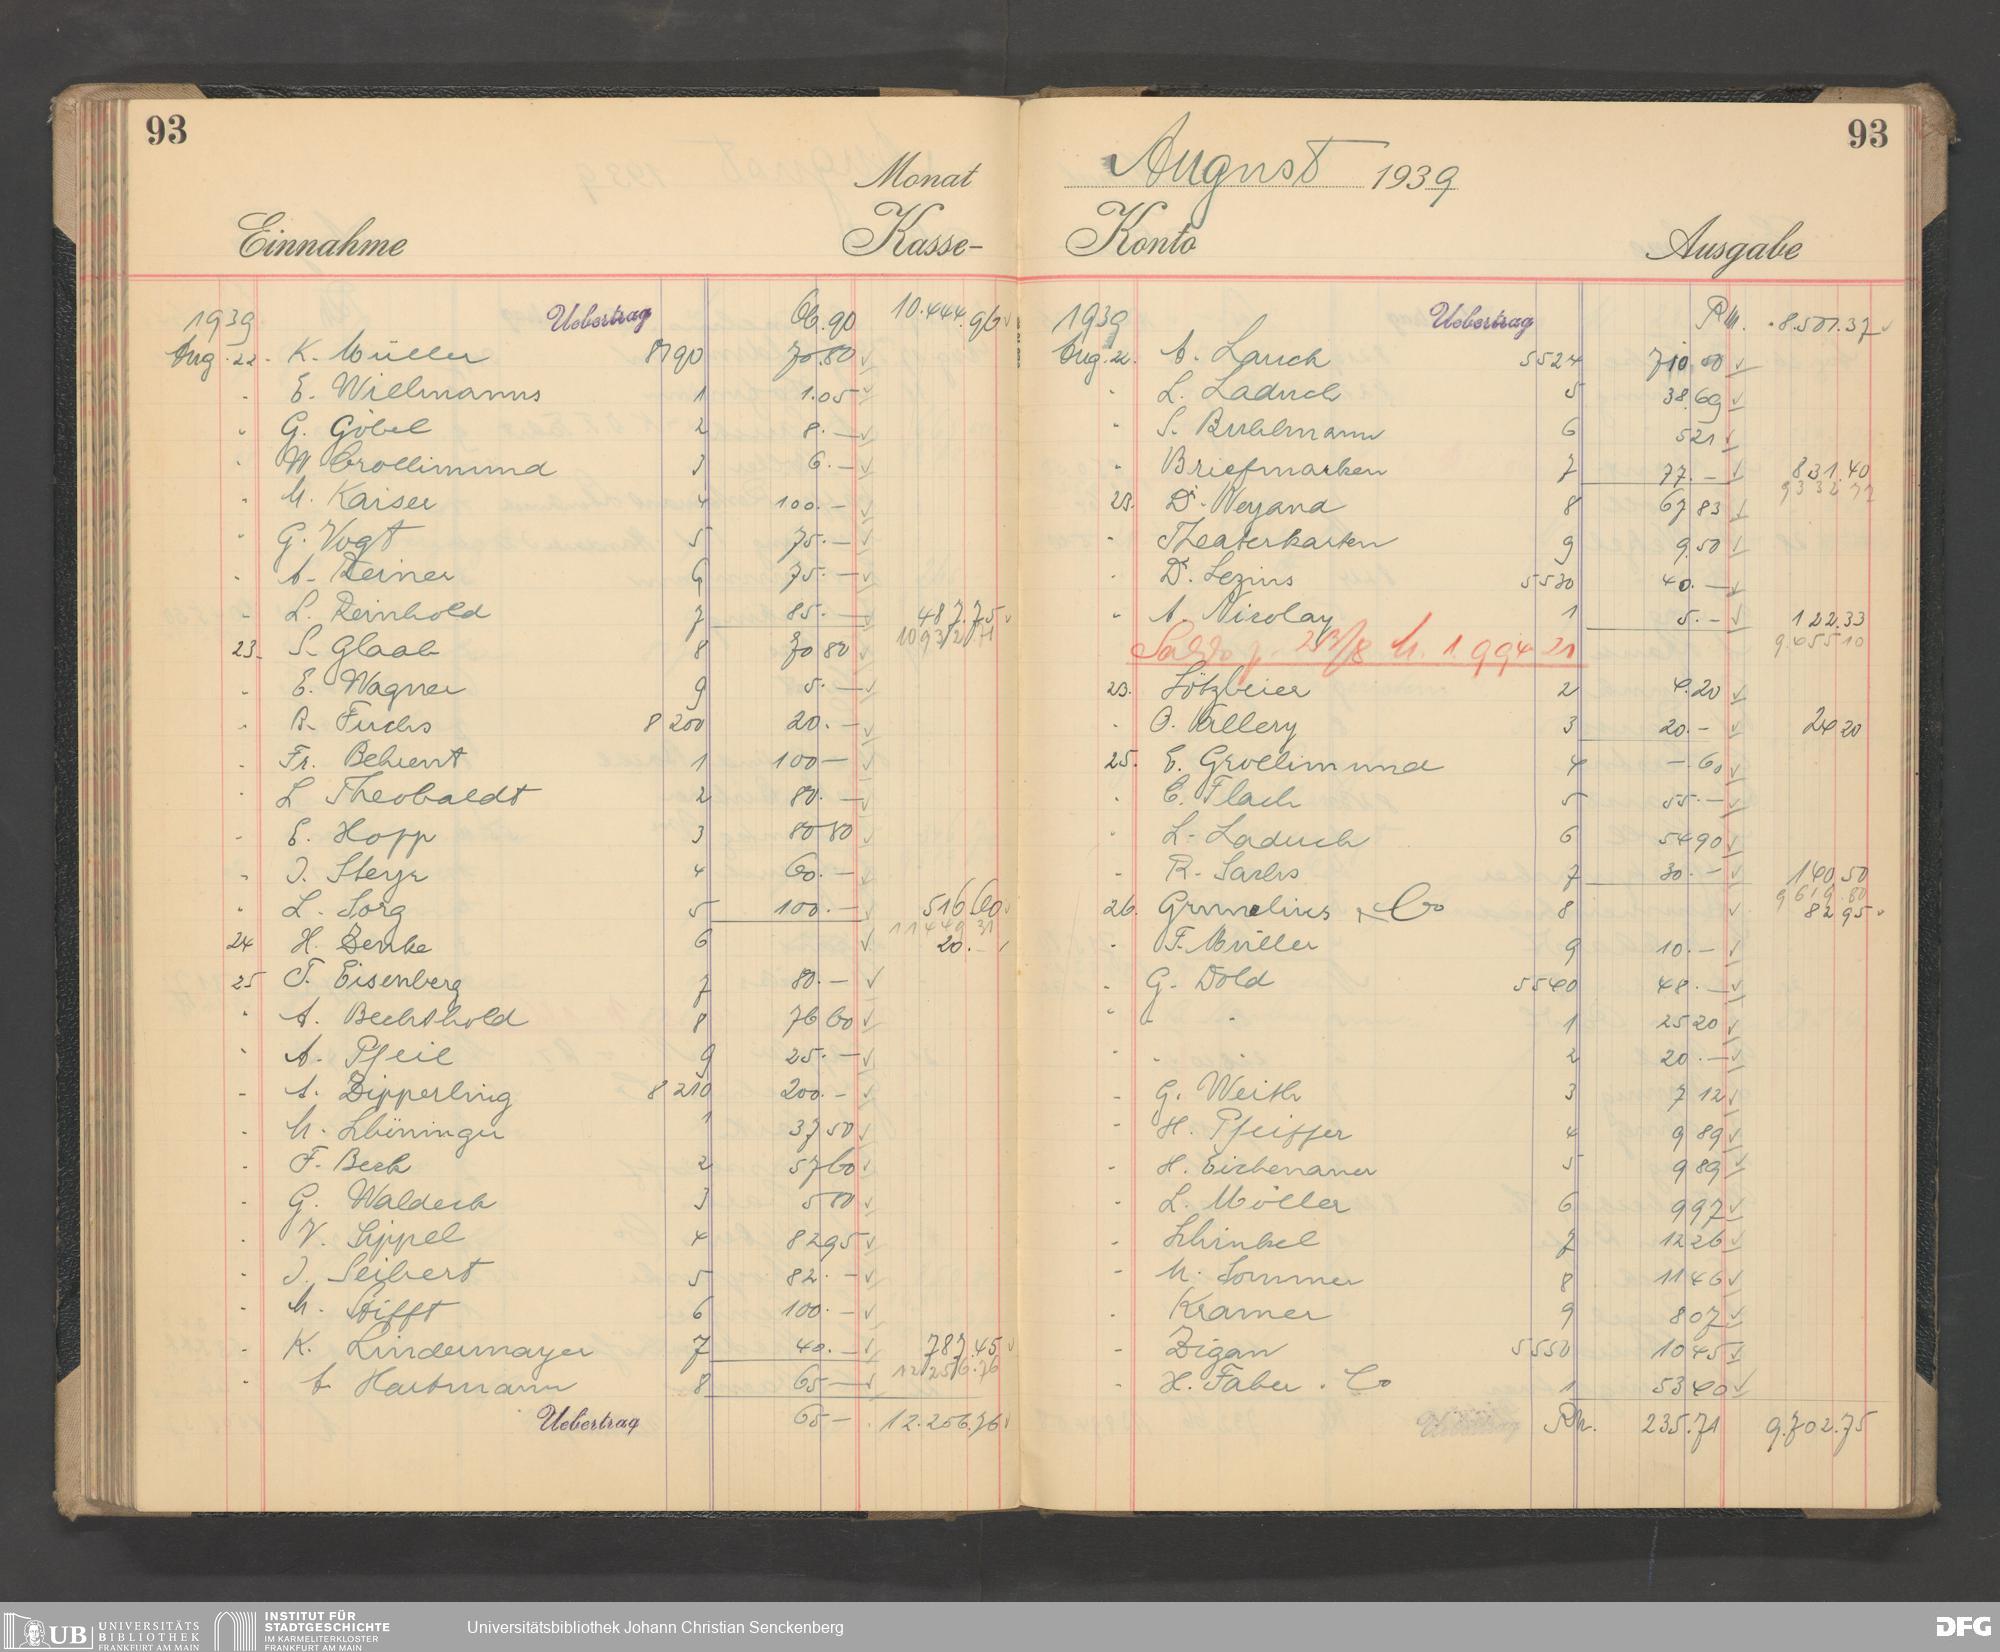 93
Monat
Einnahme Kasse-
1939 Uebertrag 66.90 10.444.96
Aug. 22. K. Müller 8190 70.80
- E. Wiellmanns 1 1.05
- G. Göbel 2 8.—
- W. Grollimund 3 6.—
- M. Kaiser 4 100.—
- G. Vogt 5 75.—
- A. Reiner 6 75.—
- L. Reinhold 7 85.— 487.75
10932 71
23. S. Glaab 8 70 80
- E. Wagner 9 5.—
- B. Fuchs 8200 20.—
- Fr. Behrent 1 100—
- L Theobaldt 2 80.—
- E. Hopp 3 80 80
- J. Steyr 4 60.—
- L. Sorg 5 100.— 516 60
11449 31
24 H. Zenke 6 20.—
25 T. Eisenberg 7 80.—
- A. Bechthold 8 76 60
- A. Pfeil 9 25.—
- A. Zipperling 8210 200.—
- M. Schöninger 1 37 50
- F. Beck 2 57 60
- G. Waldeck 3 5 80
- V. Sippel 4 82 95
- J. Seibert 5 82.—
- M. Stifft 6 100.—
- K. Lindermayer 7 40.— 787.45
12 256.76
- A. Hartmann 8 65—
Uebertrag 65— 12.256.76
93
August 1939
Konto Ausgabe
1939 Uebertrag RM. 8.501.37
Aug. 22. A. Lauch 5524 710,00
- L. Laduch 5 38.69
- S. Buhlmann 6 521
- Briefmarken 7 77.— 831.40
9332 77
23. Dr. Weyand 8 67 83
- Theaterkarten 9 9.50
- Dr. Lezius 5530 40.—
- A. Nicolay 1 5.— 122.33
9.455 10
Saldo p. 23/8 M. 1 994 21
23. Lötzbeier 2 4.20
- O. Vallery 3 20.— 24 20
25. E. Grollimund 4 —.60
- C. Flach 5 55.—
- L. Laduch 6 54 90
- R. Sachs 7 30.— 140 50
9 619.80
26. Grunelius & Co 8 82 95
- F. Müller 9 10.—
- G. Dold 5540 48.—
- - - 1 25 20
- - - 2 20.—
- G. Weith 3 7 12
- H. Pfeiffer 4 9 89
- H. Eichenauer 5 9 89
- L. Möller 6 9 97
- Schinkel 7 12 26
- M. Sommer 8 11 46
- Kramer 9 8 07
- Zigan 5550 10 45
- H. Faber & Co 1 53 40
Uebertrag RM. 235.71 9.702.75
UB UNIVERSITÄTS
BIBLIOTHEK
FRANKFURT AM MAIN
INSTITUT FÜR
STADTGESCHICHTE
IM KARMELITERKLOSTER
FRANKFURT AM MAIN
Universitätsbibliothek Johann Christian Senckenberg
DFG